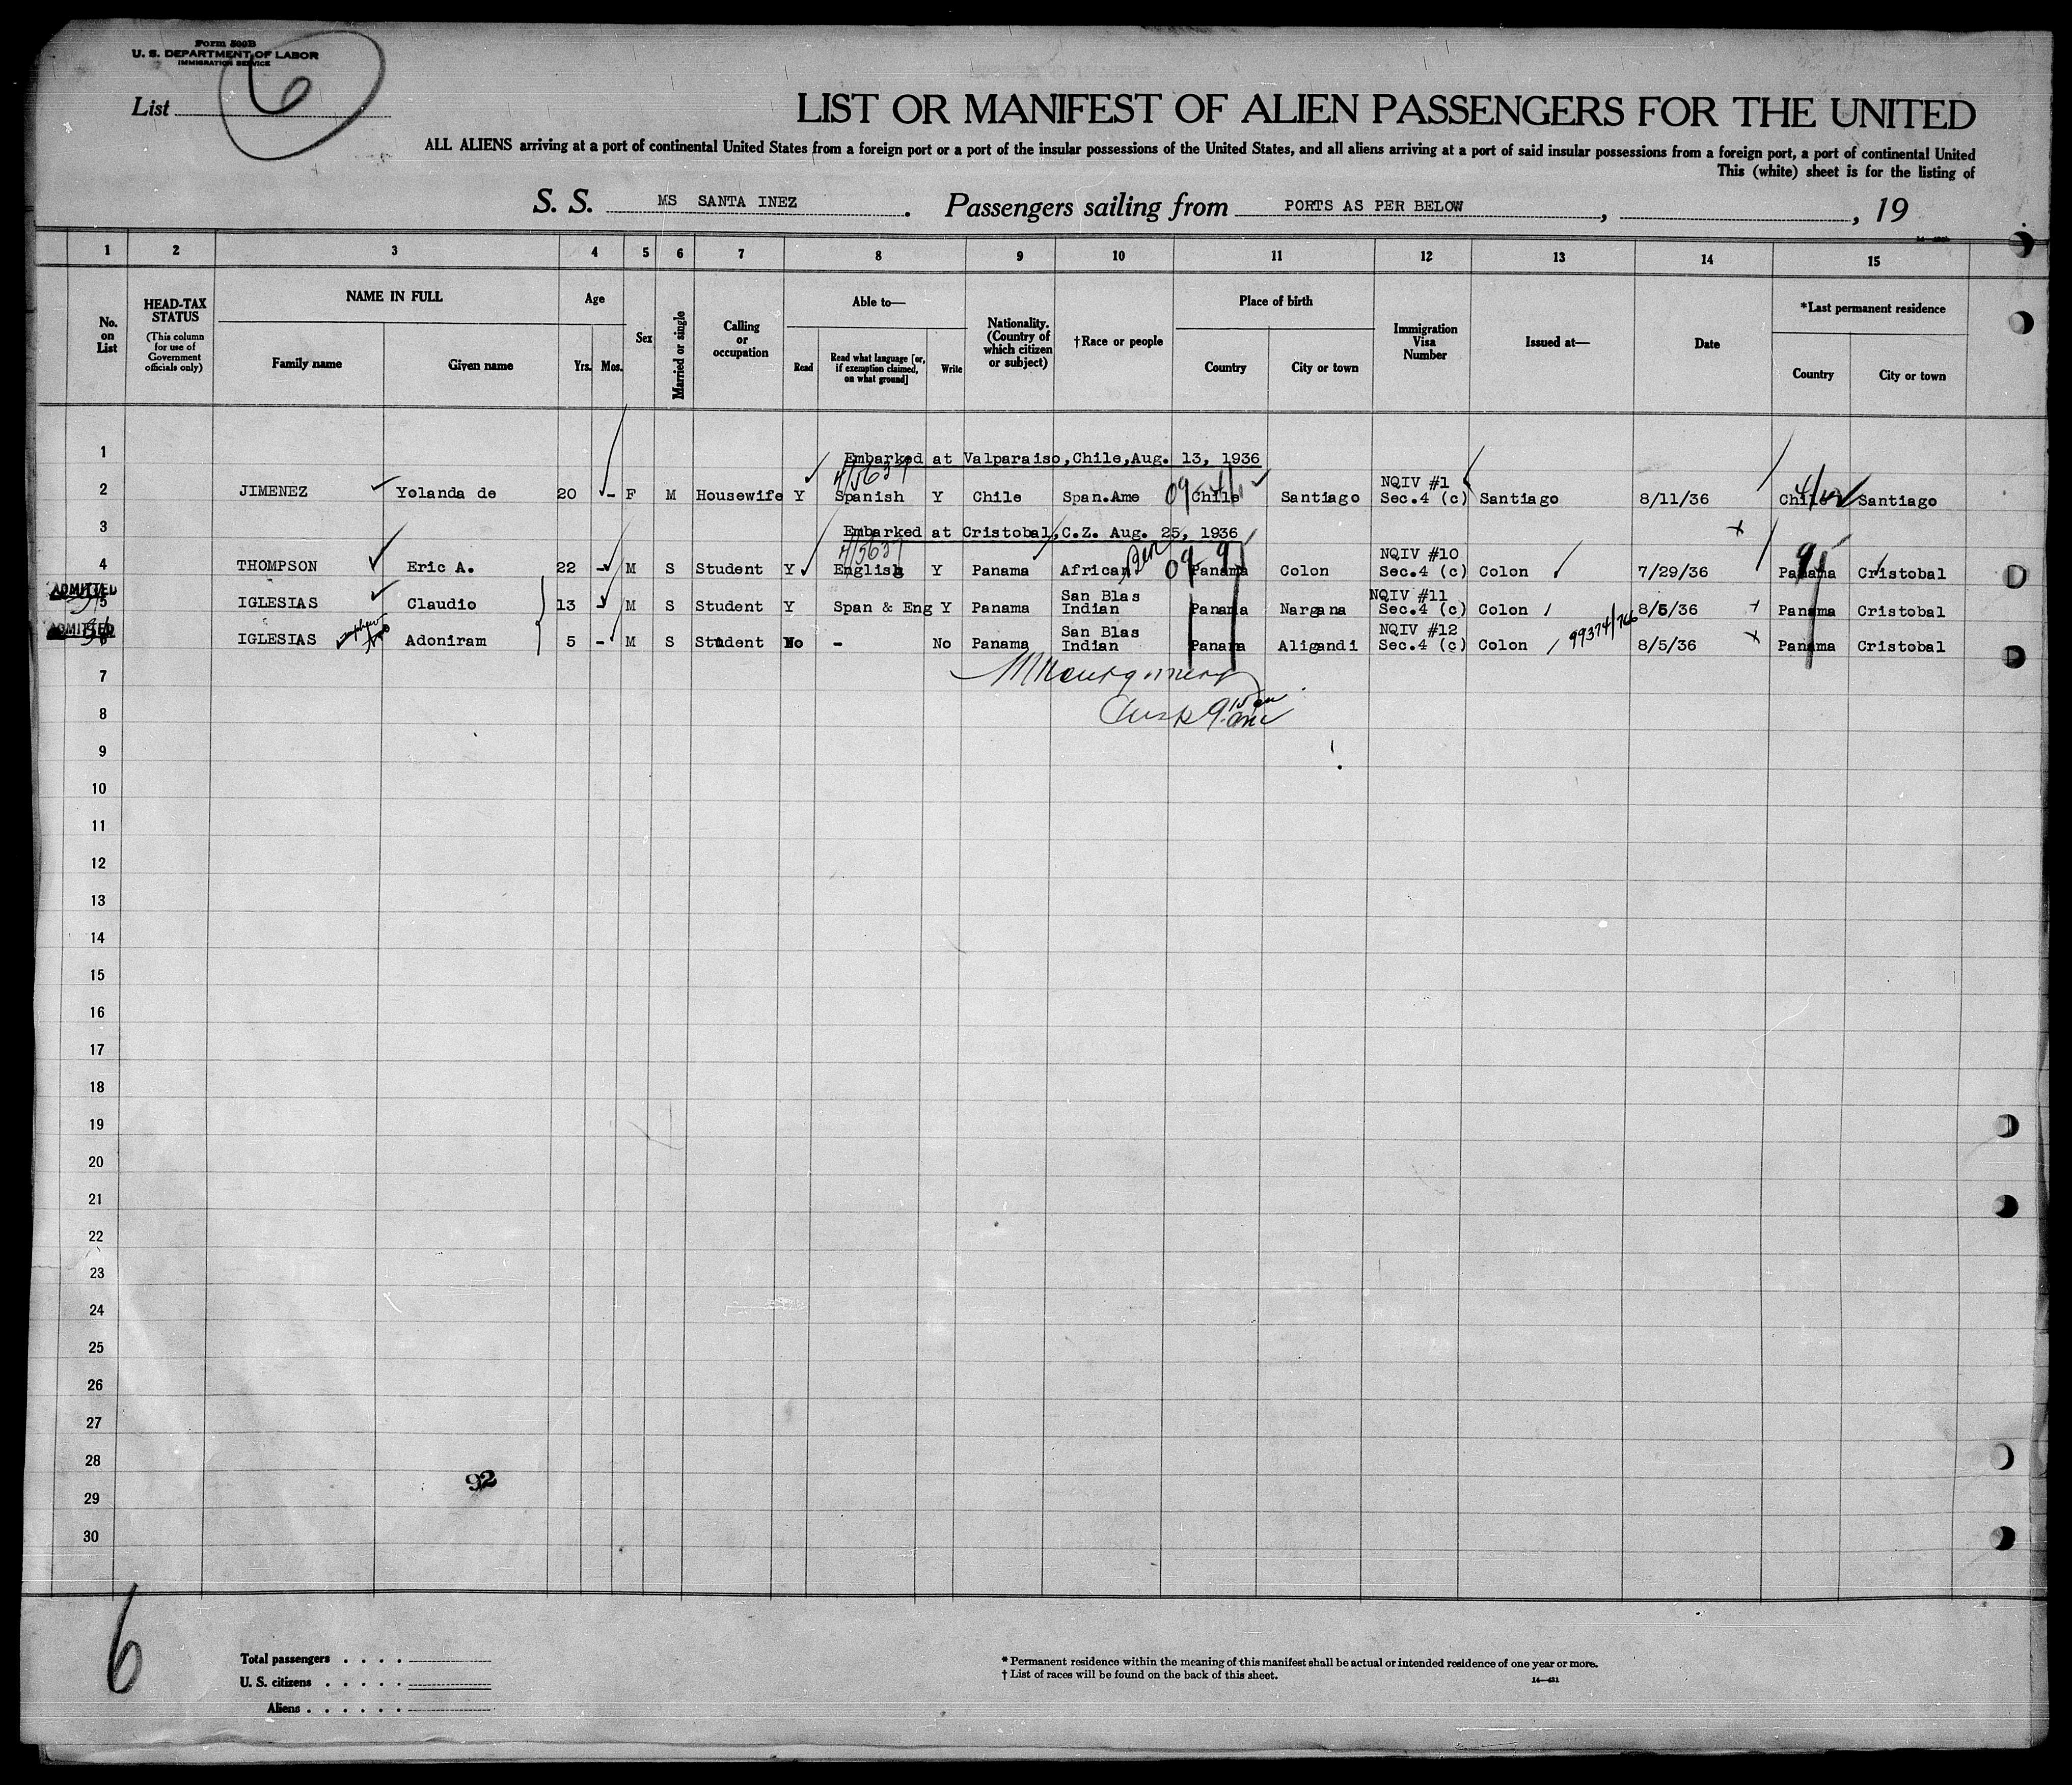 Form 500B
U. S. DEPARTMENT OF LABOR
IMMIGRATION SERVICE
List 6
LIST OR MANIFEST OF ALIEN PASSENGERS FOR THE UNITED
ALL ALIENS arriving at a port of continental United States from a foreign port or a port of the insular possessions of the United States, and all aliens arriving at a port of said insular possessions from a foreign port, a port of continental United
This (white) sheet is for the listing of
S. S. MS SANTA INEZ. Passengers sailing from PORTS AS PER BELOW, , 19
1 2 3 4 5 6 7 8 9 10 11 12 13 14 15
No. on List
HEAD-TAX STATUS (This column for use of Government officials only)
NAME IN FULL
Family name Given name
Age
Yrs. Mos.
Sex
Married or single
Calling or occupation
Able to—
Read Read what language [or, if exemption claimed, on what ground] Write
Nationality. (Country of which citizen or subject)
†Race or people
Place of birth
Country City or town
Immigration Visa Number
Issued at—
Date
*Last permanent residence
Country City or town
1 Embarked at Valparaiso, Chile, Aug. 13, 1936
4/5637
2 JIMENEZ Yolanda de 20 - F M Housewife Y Spanish Y Chile Span.Ame Chile Santiago NQIV #1 Sec.4 (c) Santiago 8/11/36 Chile Santiago
3 Embarked at Cristobal, C.Z. Aug. 25, 1936
4/5637
4 THOMPSON Eric A. 22 - M S Student Y English Y Panama African Panama Colon NQIV #10 Sec.4 (c) Colon 7/29/36 Panama Cristobal
ADMITTED
5 IGLESIAS Claudio 13 - M S Student Y Span & Eng Y Panama San Blas Indian Panama Nargana NQIV #11 Sec.4 (c) Colon 8/5/36 Panama Cristobal
ADMITTED
IGLESIAS nephew Adoniram 5 - M S Student No - No Panama San Blas Indian Panama Aligandi NQIV #12 Sec.4 (c) Colon 99374/766 8/5/36 Panama Cristobal
7 Montgomery
8
9
10
11
12
13
14
15
16
17
18
19
20
21
22
23
24
25
26
27
28
92
29
30
6
Total passengers . . . .
U. S. citizens . . . . .
Aliens . . . . . .
* Permanent residence within the meaning of this manifest shall be actual or intended residence of one year or more.
† List of races will be found on the back of this sheet.
14—431